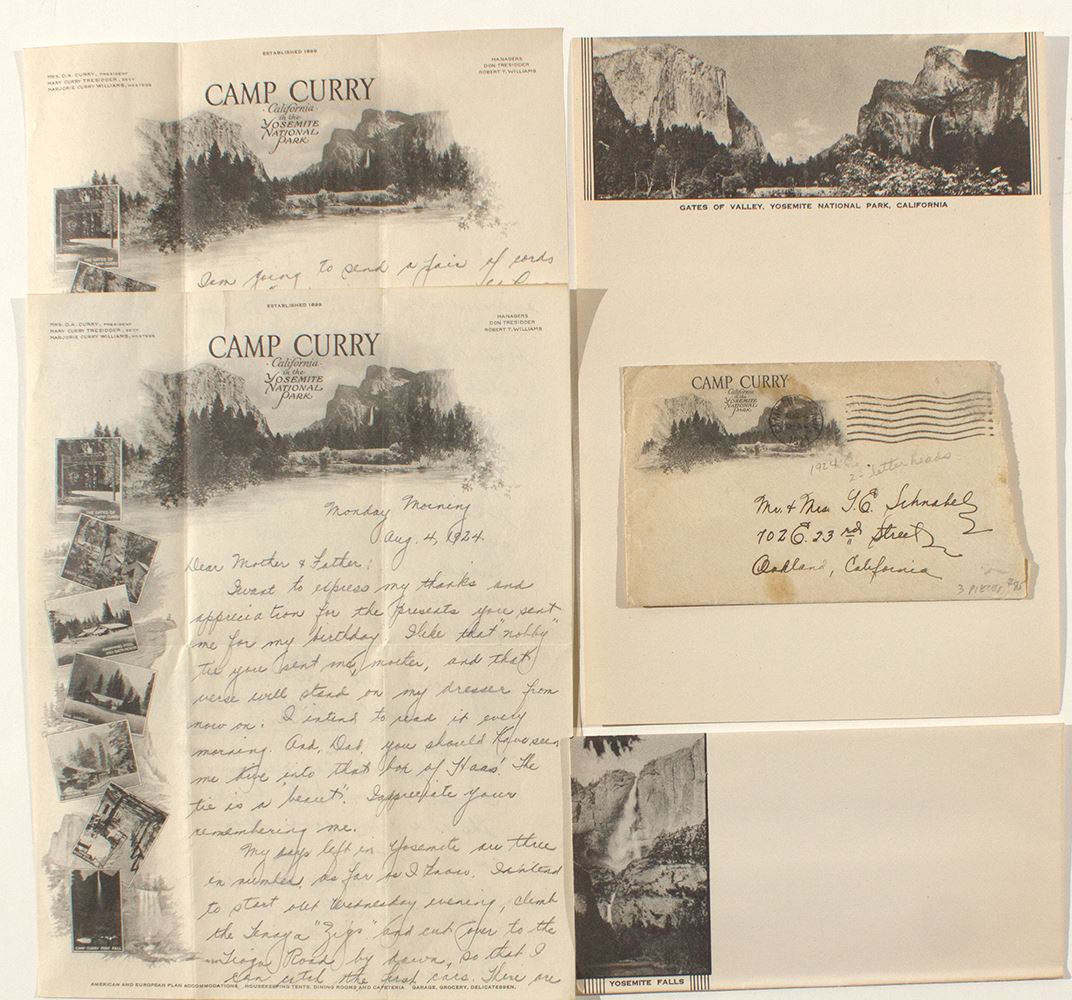 ESTABLISHED 1899
MRS. D.A. CURRY, PRESIDENT
MARY CURRY TRESIDDER, SECY
MARJORIE CURRY WILLIAMS, HOSTESS
MANAGERS
DON TRESIDDER
ROBERT T. WILLIAMS
CAMP CURRY
California
in the
YOSEMITE
NATIONAL
PARK
THE GATES OF
CAMP CURRY
I am going to send a pair of cords
ESTABLISHED 1899
MRS. D.A. CURRY, PRESIDENT
MARY CURRY TRESIDDER, SECY
MARJORIE CURRY WILLIAMS, HOSTESS
MANAGERS
DON TRESIDDER
ROBERT T. WILLIAMS
CAMP CURRY
California
in the
YOSEMITE
NATIONAL
PARK
THE GATES OF
CAMP CURRY
Monday Morning
Aug. 4, 1924.
Dear Mother & Father:
I want to express my thanks and
appreciation for the presents you sent
me for my birthday. I like that "nobby"
tie you sent me, mother, and that
verse will stand on my dresser from
now on. I intend to read it every
morning. And, Dad, you should have seen
me dive into that box of Haas'. The
tie is a "beaut". I appreciate your
remembering me.
My days left in Yosemite are three
in number, as far as I know. I intend
to start out Wednesday evening, climb
the Tenaya "Zigs" and cut over to the
Tioga Road by dawn, so that I
can catch the first cars. There are
CAMP CURRY FIRE FALL
AMERICAN AND EUROPEAN PLAN ACCOMMODATIONS HOUSEKEEPING TENTS, DINING ROOMS AND CAFETERIA GARAGE, GROCERY, DELICATESSEN.
GATES OF VALLEY, YOSEMITE NATIONAL PARK, CALIFORNIA
CAMP CURRY
California
in the
YOSEMITE
NATIONAL
PARK
1924
2 - letterheads
Mr. & Mrs. G.E. Schnabel
702 E. 23rd Street
Oakland, California
3 PIECES
YOSEMITE FALLS